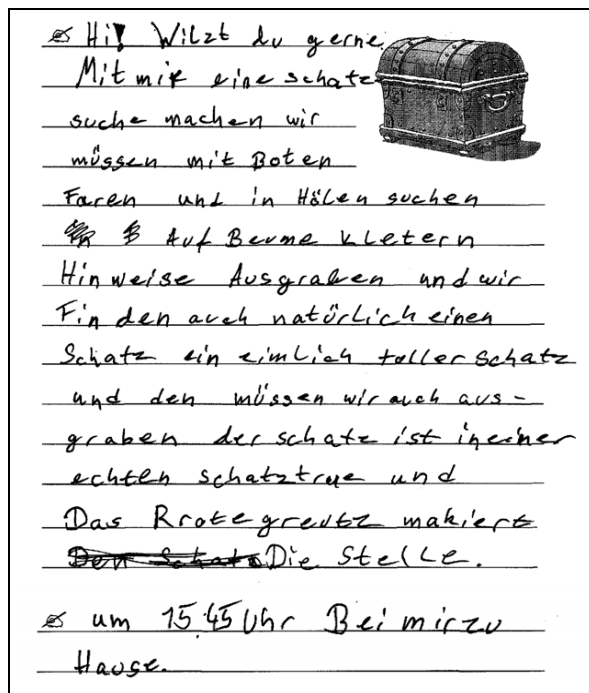 Hi! Wilzt du gerne
Mit mir eine schatz
suche machen wir
müssen mit Boten
Faren und in Hölen suchen
Auf Beume kletern
Hinweise Ausgraben und wir
Finden auch natürlich einen
Schatz ein eimlich toller schatz
und den müssen wir auch aus-
graben der schatz ist in einer
echten schatztrue und
Das Rrote greutz makiert
Den Schatz Die Stelle.
um 15.45 Uhr Bei mir zu
Hause.